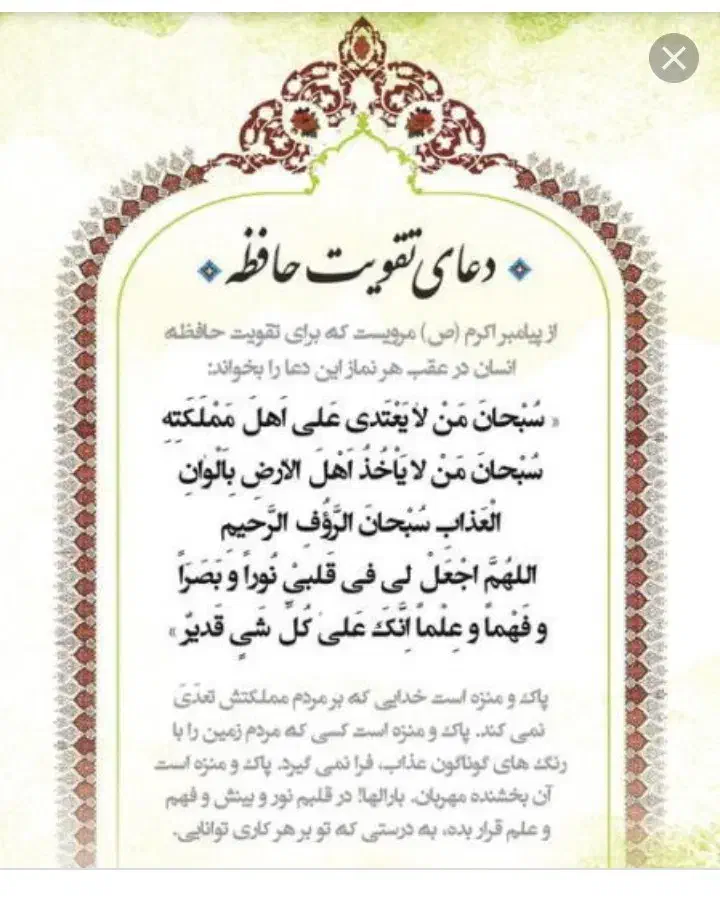 دعای تقویت حافظه
از پیامبر اکرم (ص) مرویست که برای تقویت حافظه
انسان در عقب هر نماز این دعا را بخواند:
« سُبْحانَ مَنْ لا یَعْتَدی عَلی اَهلَ مَمْلَکَتِهِ
سُبْحانَ مَنْ لا یَأخُذُ اَهْلَ الاَرضِ بِاَلْوانِ
الْعَذابِ سُبْحانَ الرَّؤُفِ الرَّحیمِ
اللهُمَّ اجْعَلْ لی فی قَلبیْ نُوراً وَ بَصَراً
و فَهْماً و عِلْماً اِنَّکَ عَلیٰ کُلِّ شَیٍ قَدیرٌ »
پاک و منزه است خدایی که بر مردم مملکتش تعدّیَ
نمی کند. پاک و منزه است کسی که مردم زمین را با
رنگ های گوناگون عذاب، فرا نمی گیرد. پاک و منزه است
آن بخشنده مهربان. بارالها! در قلبم نور و بینش و فهم
و علم قرار بده، به درستی که تو بر هر کاری توانایی.